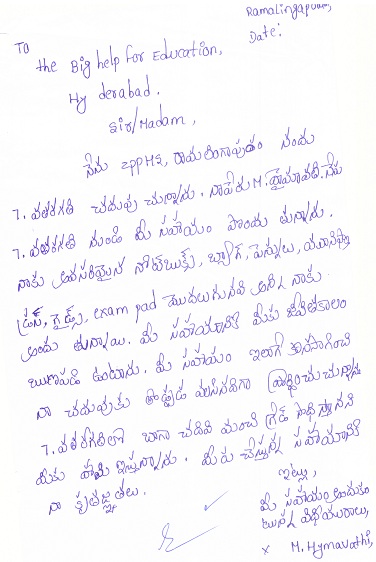 Ramalingapuram,
Date:
To
the Big help for Education,
Hyderabad.
Sir/Madam,
నేను ZPPHS, రామలింగాపురం నందు
7. వతరగతి చదువు చున్నాను. నాపేరు M. హైమావతి. నేను
7. వతరగతి నుండి మీ సహాయం పొందు తున్నాను.
నాకు అవసరమైన నోట్‌బుక్స్, బ్యాగ్, పెన్నులు, యూనిఫాం
డ్రస్, గైడ్స్, exam pad మొదలుగునవి అన్ని నాకు
అందు తున్నాయి. మీ సహాయానికి మీకు జీవితకాలం
ఋణపడి ఉంటాను. మీ సహాయం ఇలాగే కొనసాగించి
నా చదువుకు తోడ్పడ వలసినదిగా ప్రార్థించు చున్నాను
7. వతరగతిలో బాగా చదివి మంచి గ్రేడ్ సాధిస్తానని
మీకు హామీ ఇస్తున్నాను. మీరు చేస్తున్న సహాయానికి
నా కృతజ్ఞతలు.
ఇట్లు,
మీ సహాయం అందుకుం
టున్న విధేయురాలు,
x M. Hymavathi,